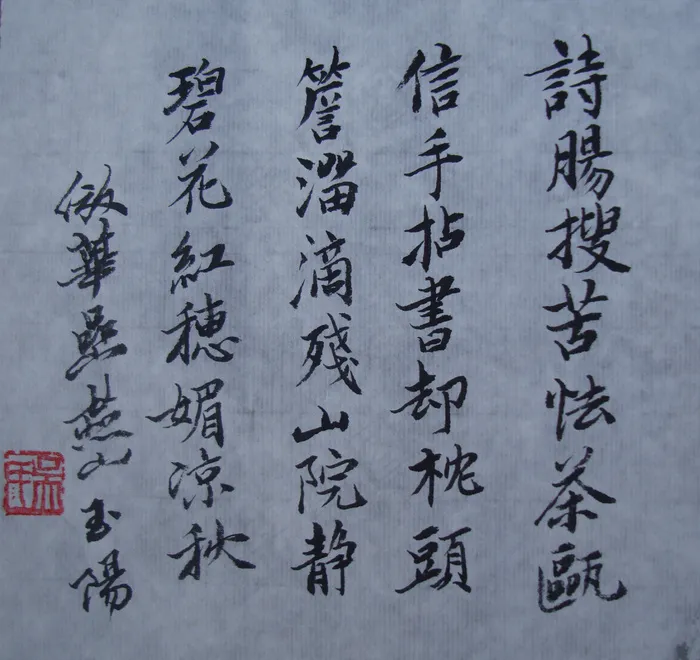 詩腸搜苦怯茶甌
信手拈書却枕頭
簷溜滴殘山院静
碧花紅穗媚涼秋
倣華喦燕山玉陽